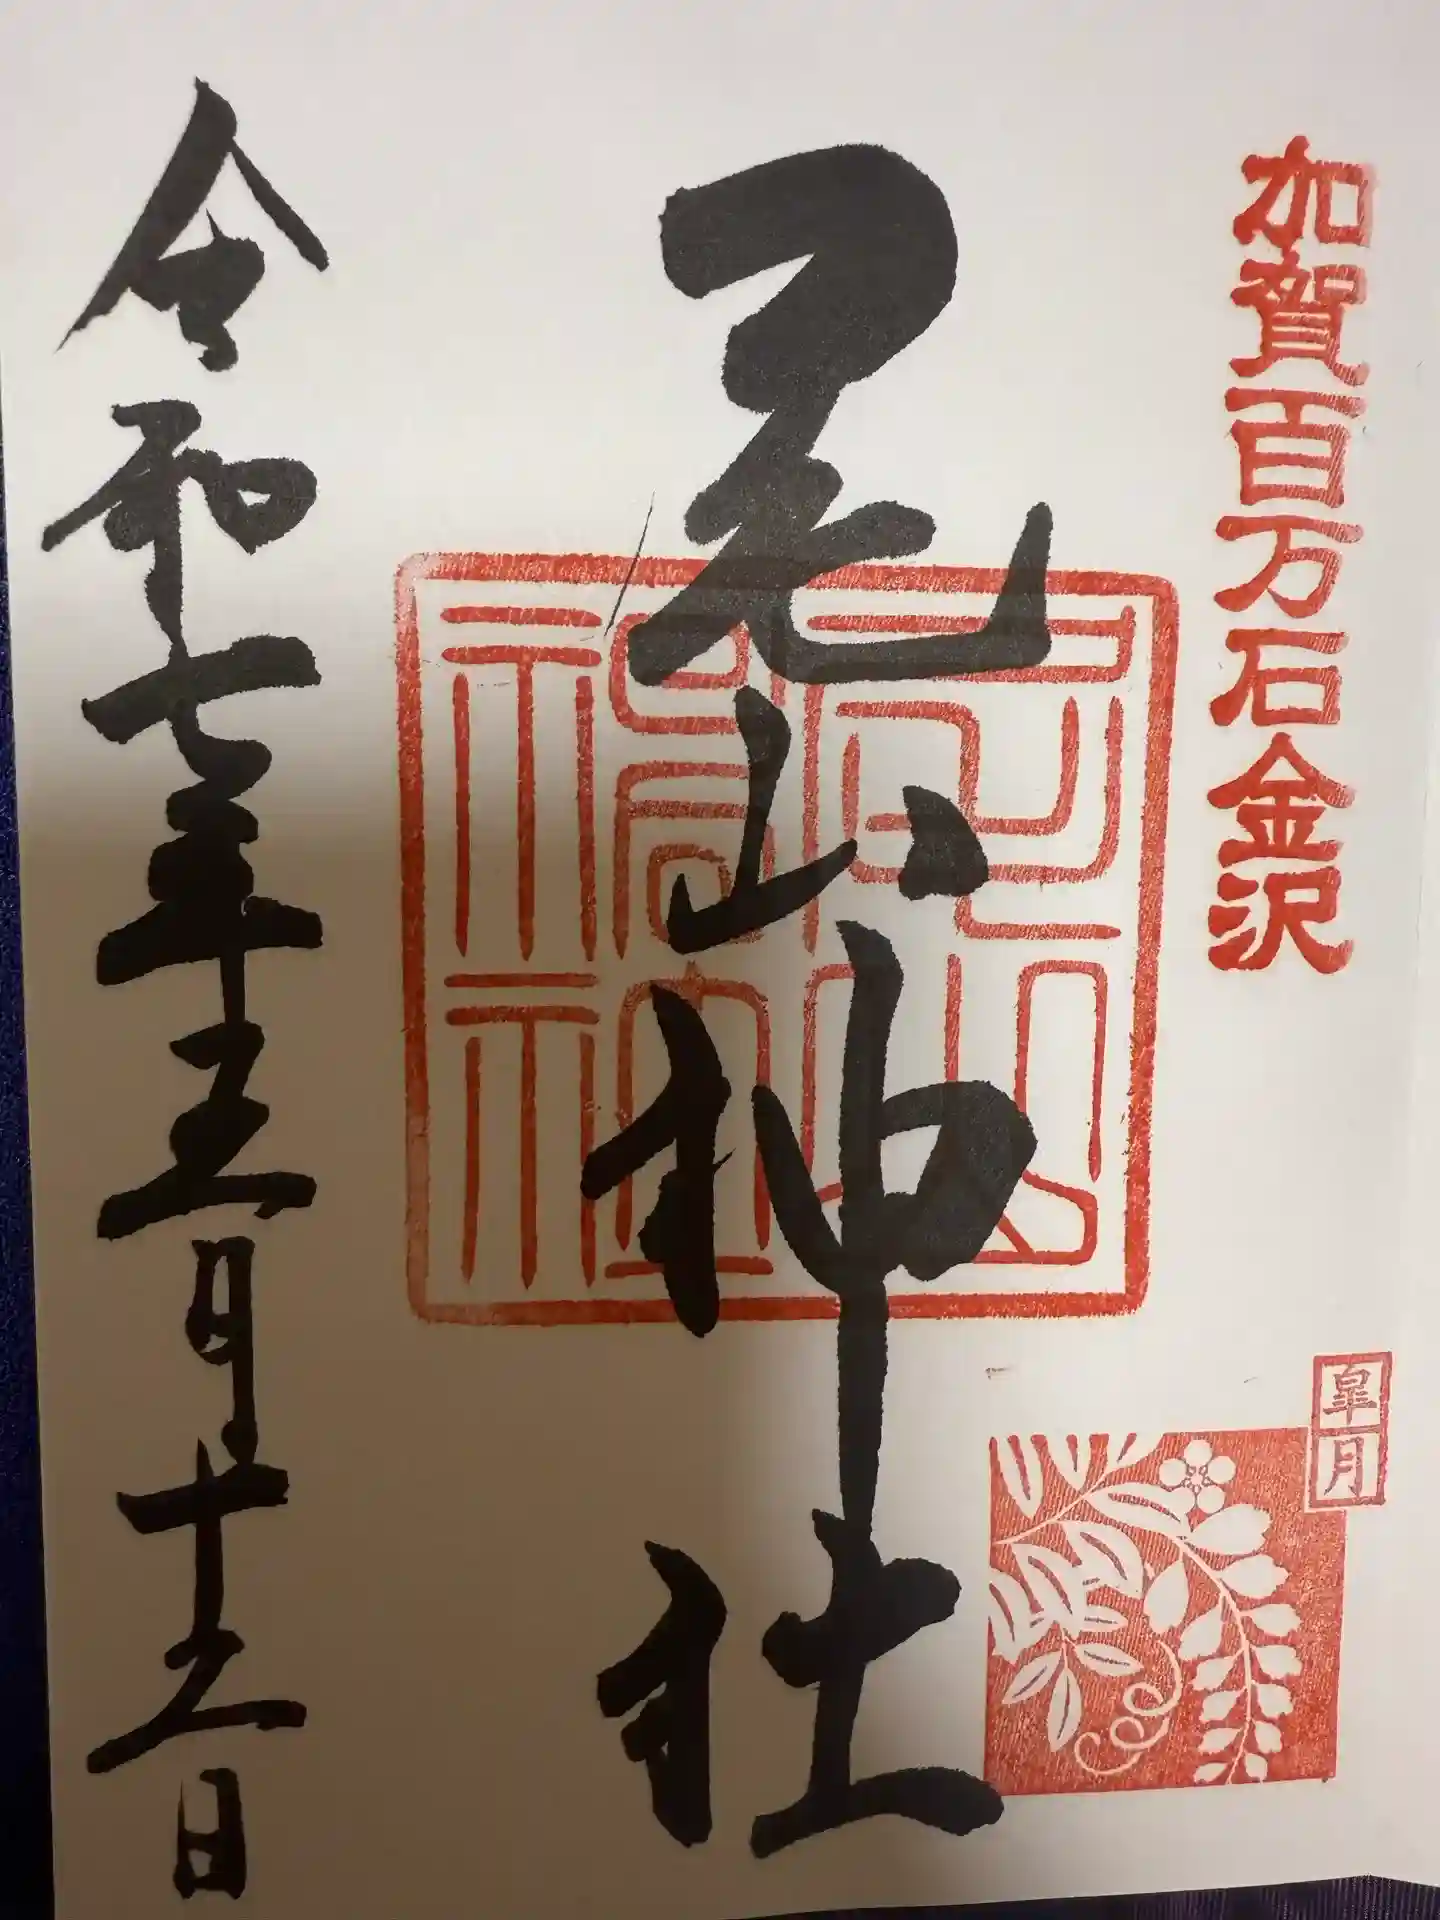 加賀百万石金沢
尾山神社
尾山神社
皐月
令和七年五月十二日